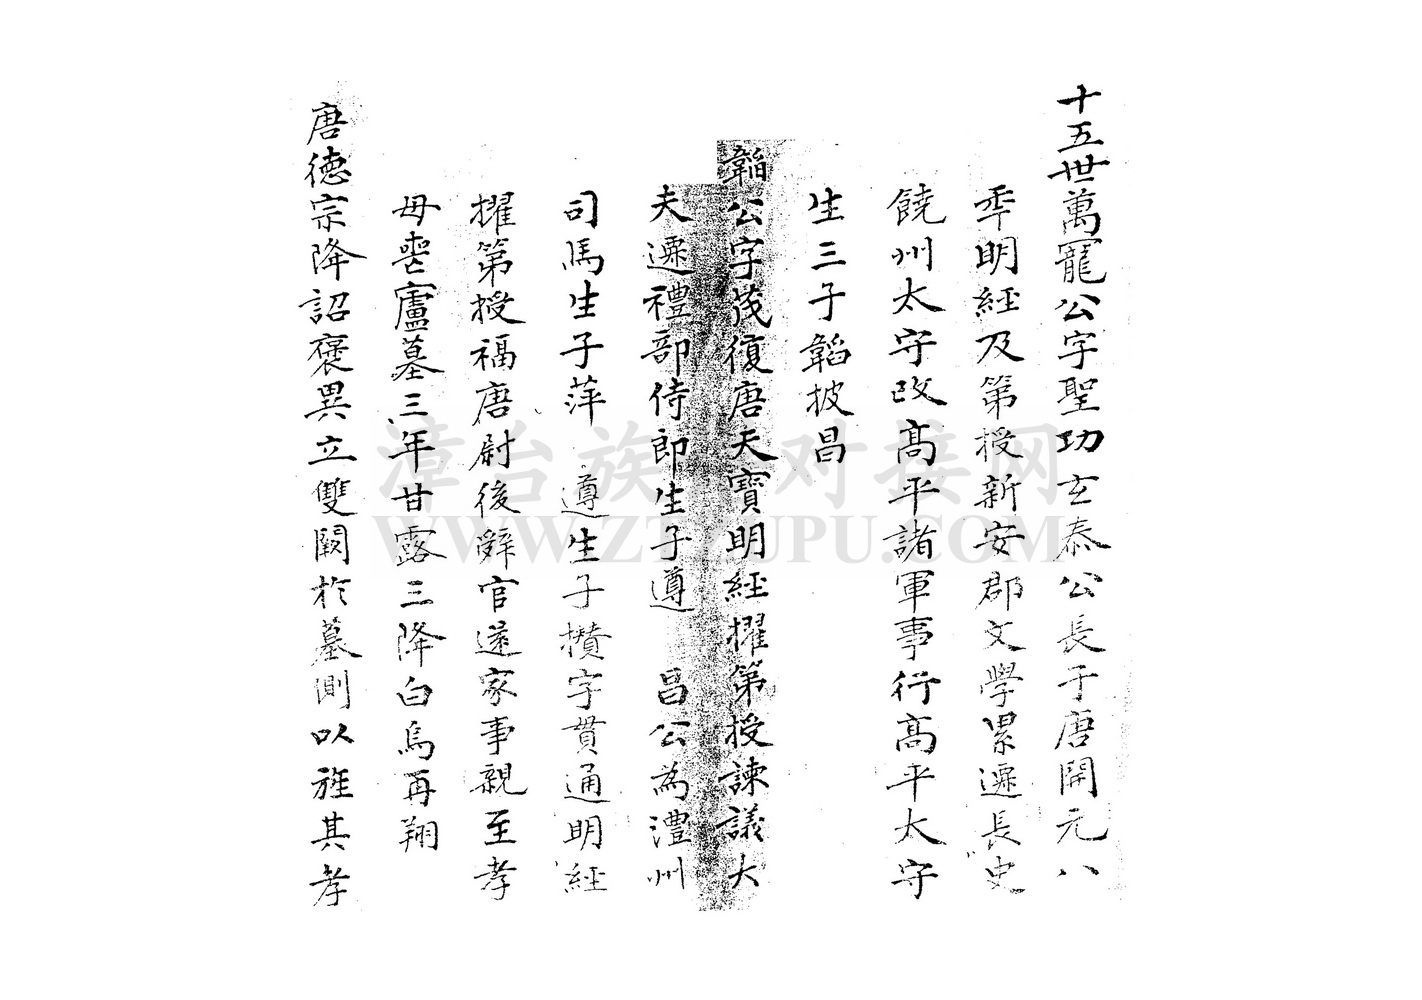 十五世萬寵公字聖功玄泰公長子唐開元八
年明經及第授新安郡文學累遷長史
饒州太守改高平諸軍事行高平太守
生三子韜披昌
韜公字茂復唐天寶明經擢第授諫議大
夫遷禮部侍郎生子遵 昌公為澧州
司馬生子萍 遵生子攢字貫通明經
擢第授福唐尉後辭官還家事親至孝
母喪廬墓三年甘露三降白烏再翔
唐德宗降詔褒異立雙闕於墓側以旌其孝
漳台族 对接网
WWW.ZTZUPU.COM